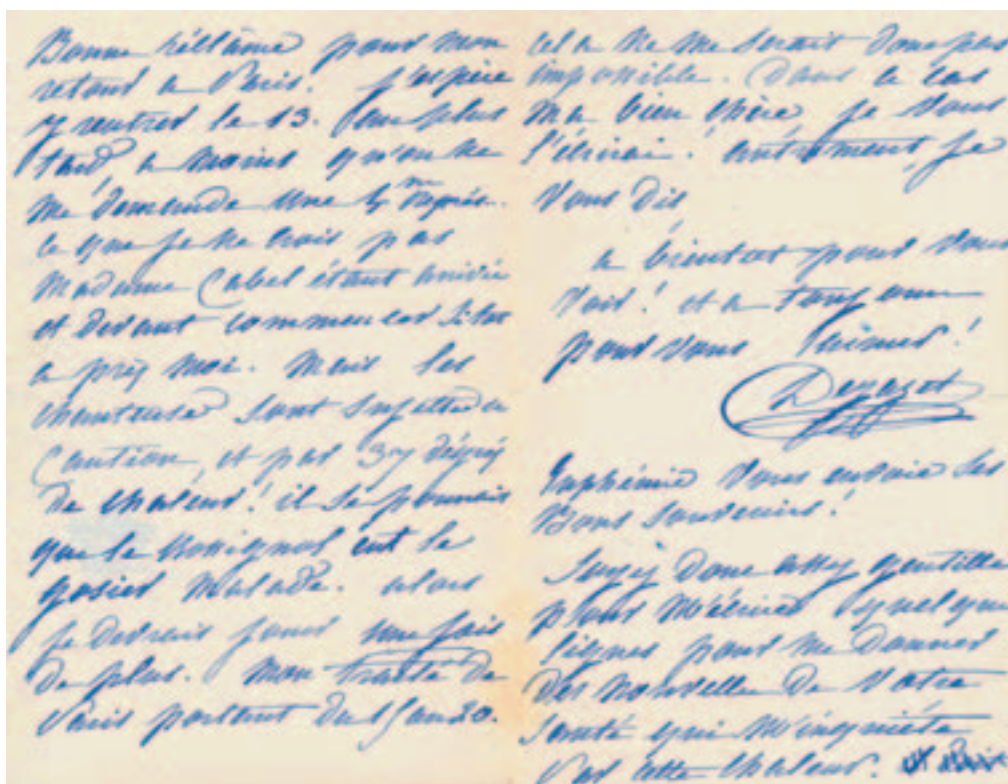 Bonne réclame pour mon
retour a Paris. j'espère
y rentrer le 13. au plus
tard, a moins qu'on ne
me demande une 5me représ..
ce que je ne crois pas
Madame Cabel étant arrivée
et devant commencer sitot
a près moi. Mais les
chanteuses sont sujettes a
Caution, et par 37 dégrés
de chaleur! il se pourrais
que le rossignol eut le
gosier malade. alors
je devrais jouer une fois
de plus. Mon traité de
Paris portant du 15 au 20.
cela ne me serait donc pas
impossible. Dans ce cas
Ma bien chère je vous
l'écrirai! autrement, je
Vous dis
a bientot pour vous
voir! et a toujours
pour vous aimer!
Dejazet
Euphémie vous envoie ses
Bons souvenirs!
Soyez donc assez gentille
pour m'écrire quelque
lignes pour me donner
des nouvelle de votre
santé qui m'inquiéte
Par cette chaleur.